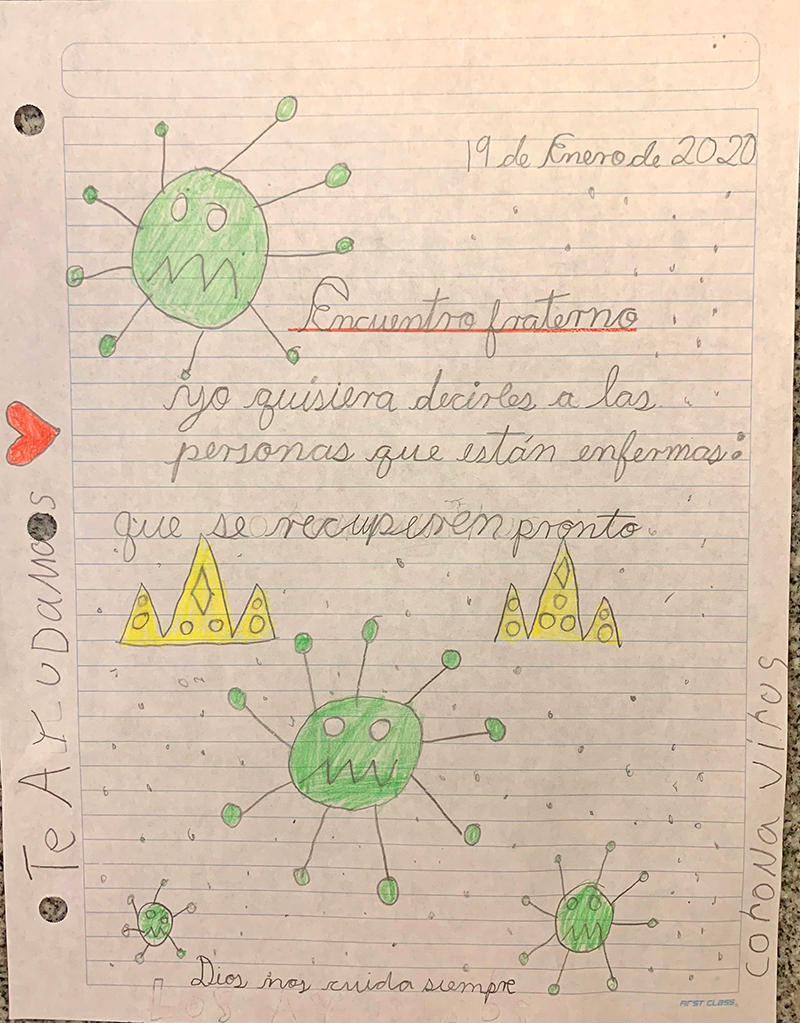 19 de Enero de 2020
Encuentro fraterno
yo quisiera decirles a las
personas que están enfermas:
que se recuperen pronto.
Te AYUDAMOS
corona virus
Dios nos cuida siempre
FIRST CLASS